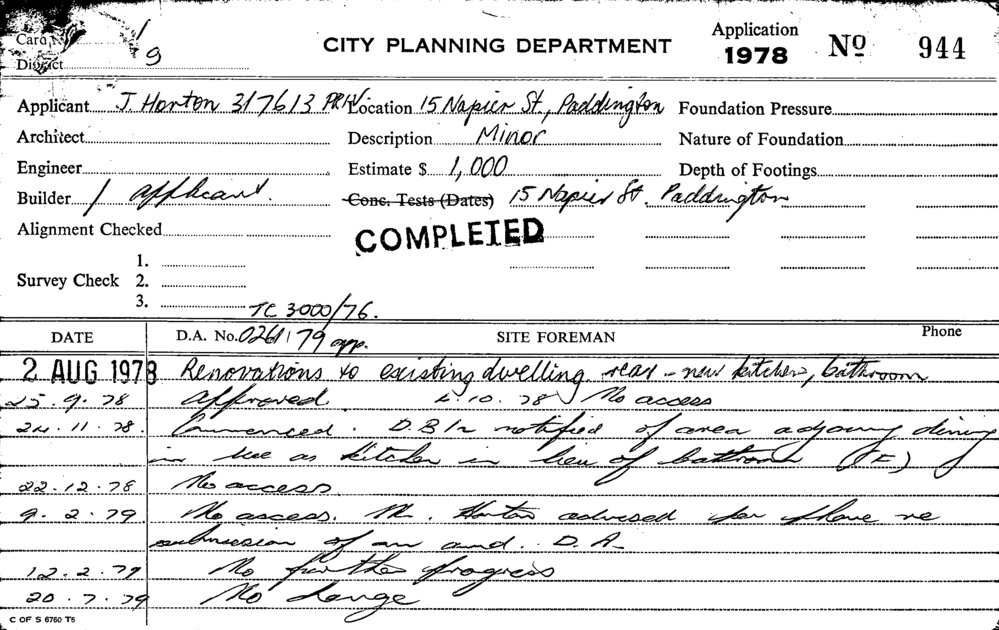 Card No. 1
District 9
CITY PLANNING DEPARTMENT
Application
1978 No 944
Applicant J. Horton 317613 PRIV Location 15 Napier St, Paddington Foundation Pressure
Architect Description Minor Nature of Foundation
Engineer Estimate $ 1,000 Depth of Footings
Builder / applicant. Conc. Tests (Dates) 15 Napier St. Paddington
Alignment Checked COMPLETED
1.
Survey Check 2.
3. TC 3000/76.
DATE D.A. No. 0261/79 app. SITE FOREMAN Phone
2 AUG 1978 Renovations to existing dwelling rear - new kitchen, bathroom
25.9.78 Approved. 4.10.78 No access
24.11.78. Commenced. notified of area adjoining dining
in use as kitchen in lieu of bathroom
22.12.78 No access.
9.2.79. No access. Mr. Horton advised phone re
submission of an amd. D.A.
12.2.79 No further progress
20.7.79 No change
C OF S 6760 T5